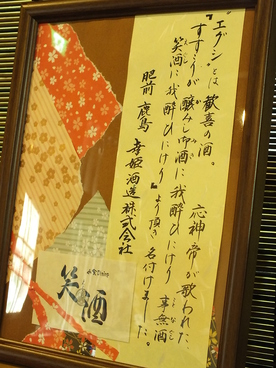 “エグシ”とは歓喜の酒。 応神帝が歌われた
『すすこりが醸みし御酒に我酔ひにけり 事無酒
笑酒に我酔ひにけり』より頂き名付けました。
肥前 鹿島 幸姫酒造株式会社
笑酒